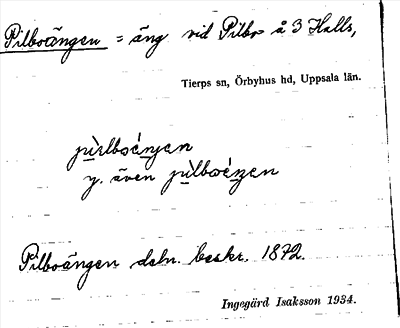 Pilboängen = äng vid Pilbo å 3 Halls,
Tierps sn, Örbyhus hd, Uppsala län.
y. även
Pilboängen deln. beskr. 1872.
Ingegärd Isaksson 1934.